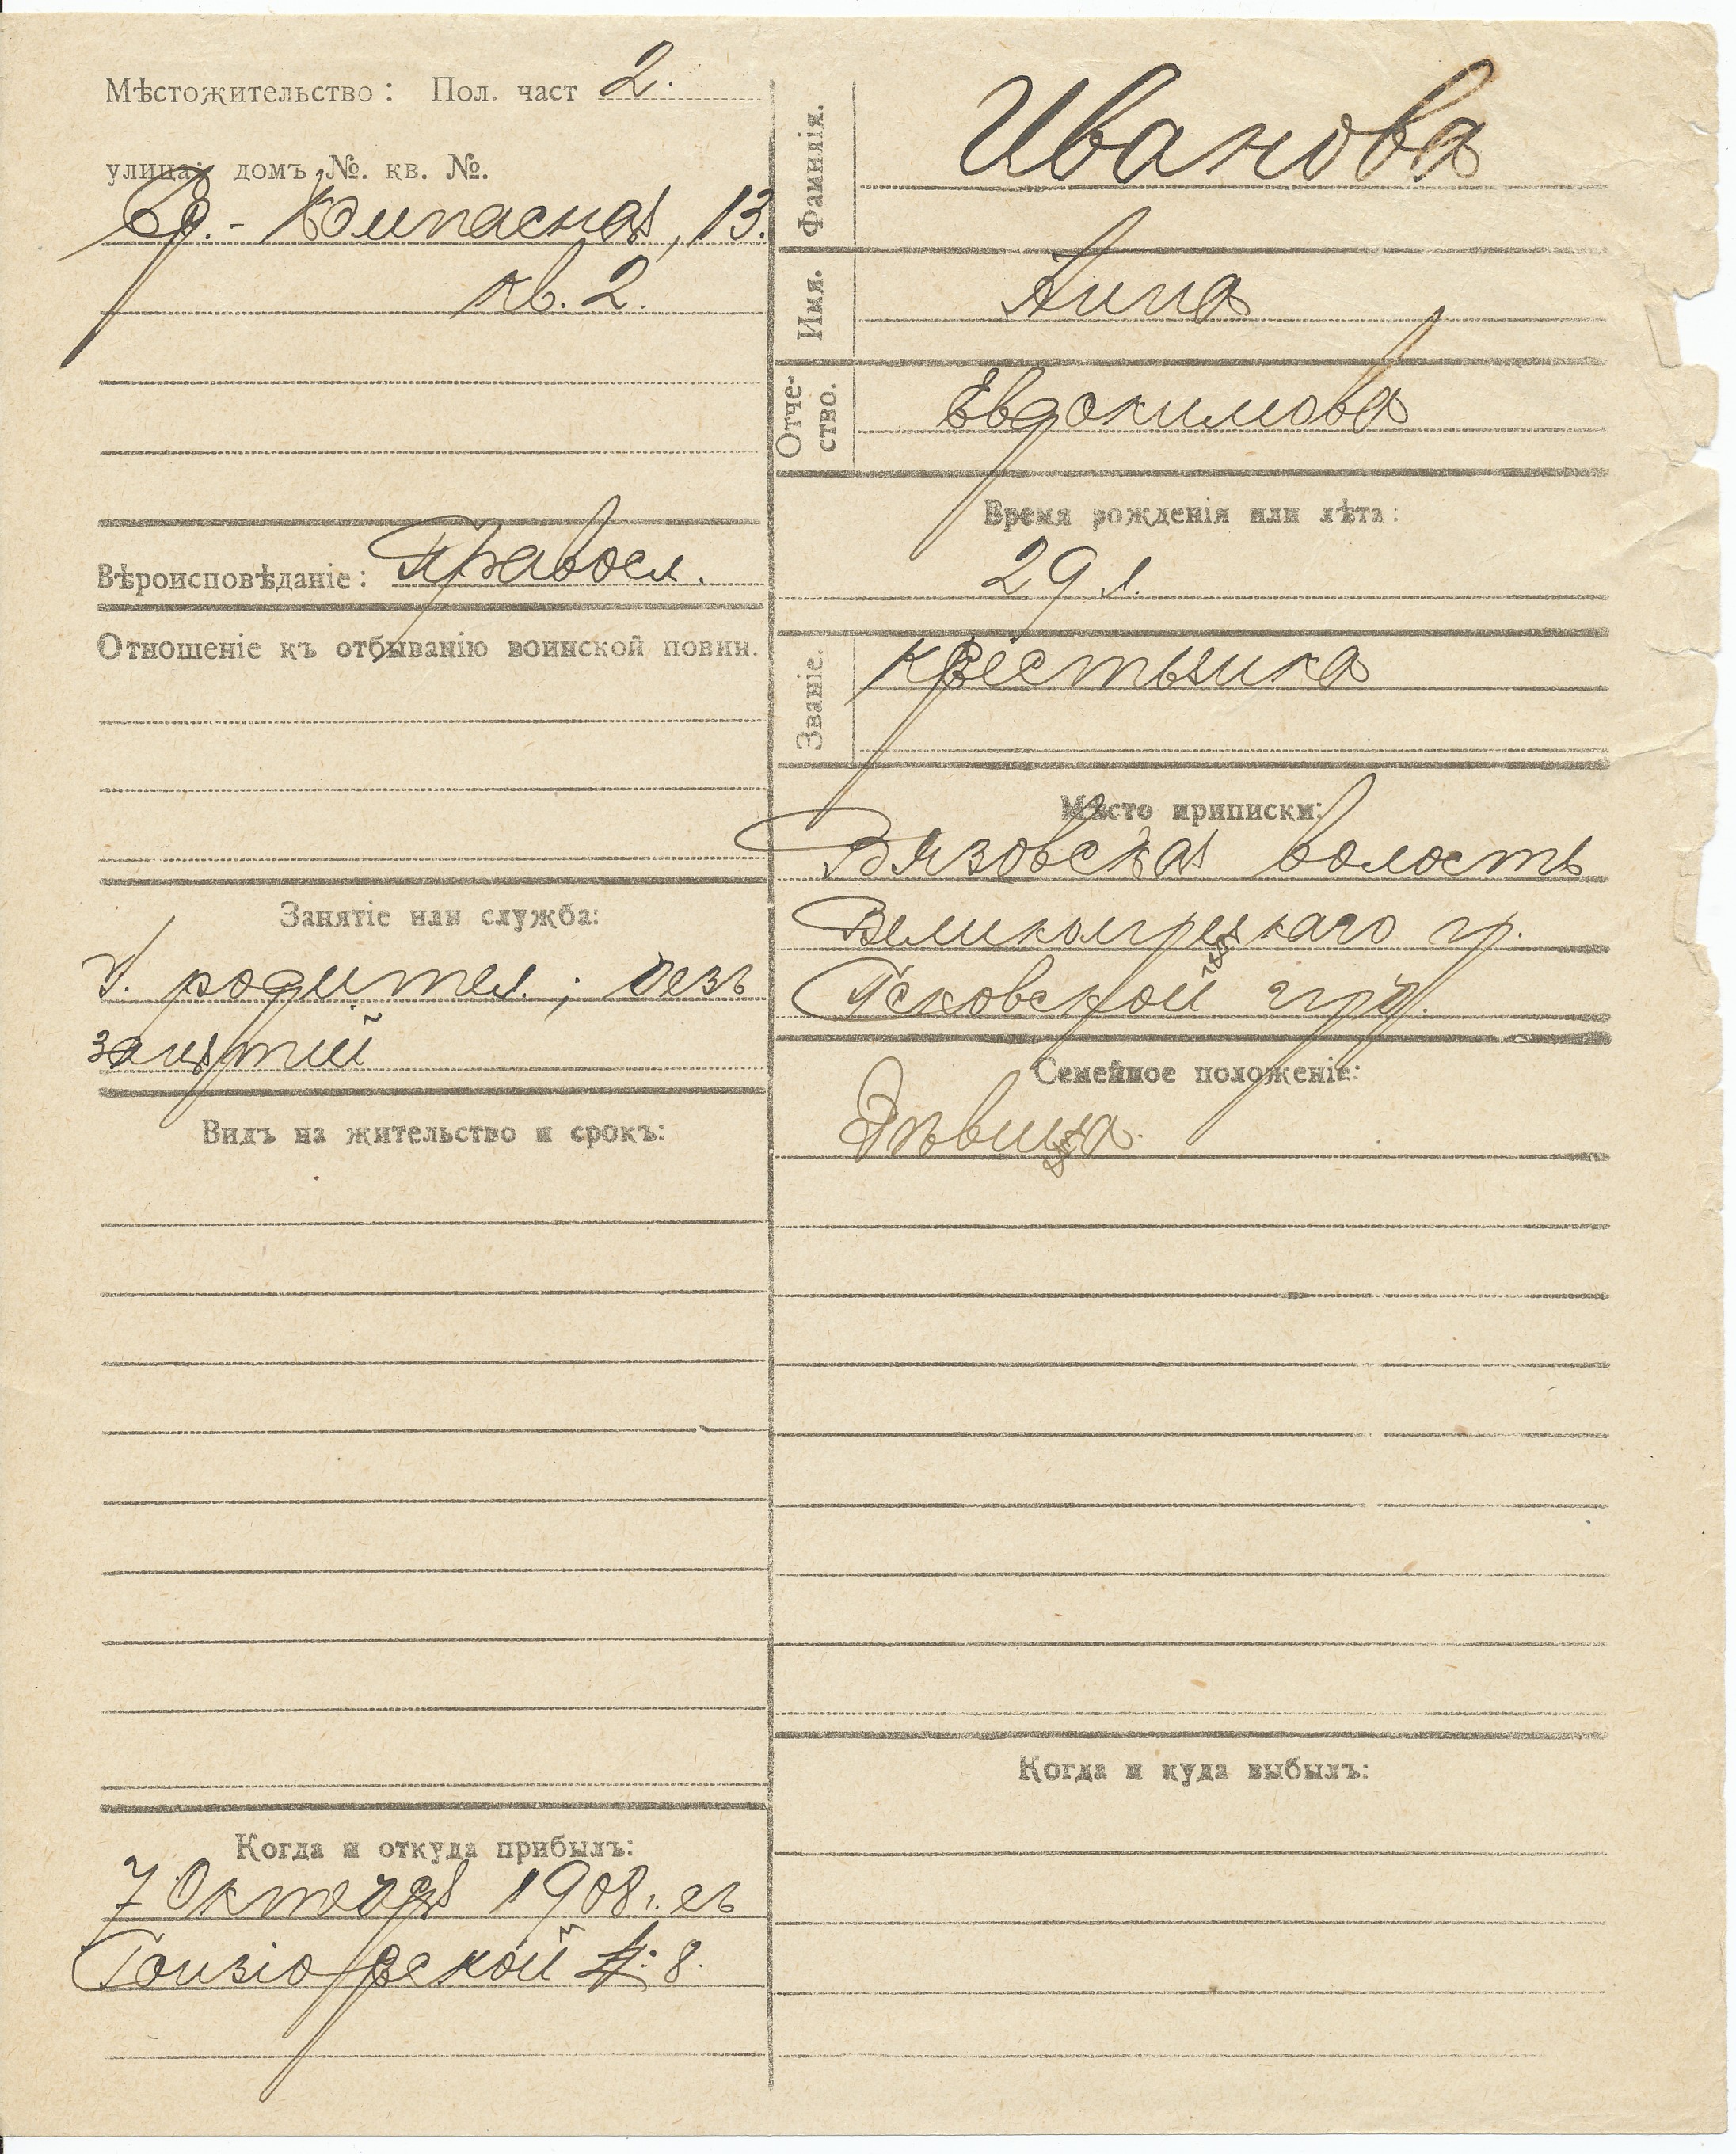 Мѣстожительство: Пол. част 2.
улица: домъ №. кв. №.
Ср.-Кипасная, 13.
кв. 2.
Вѣроисповѣданіе: Правосл.
Отношеніе къ отбыванію воинской повин.
Занятіе или служба:
У родител.; безъ
занятій
Видъ на жительство и срокъ:
Когда и откуда прибылъ:
7 Октября 1908 г. съ
Гонзіоровской 8.
Фамилія. Иванова
Имя. Анна
Отче-
ство. Евдокимова
Время рожденія или лѣта:
29 л.
Званіе. крестьянка
Мѣсто приписки:
Вязовская волость
Псковской губ.
Семейное положеніе:
Дѣвица.
Когда и куда выбылъ: